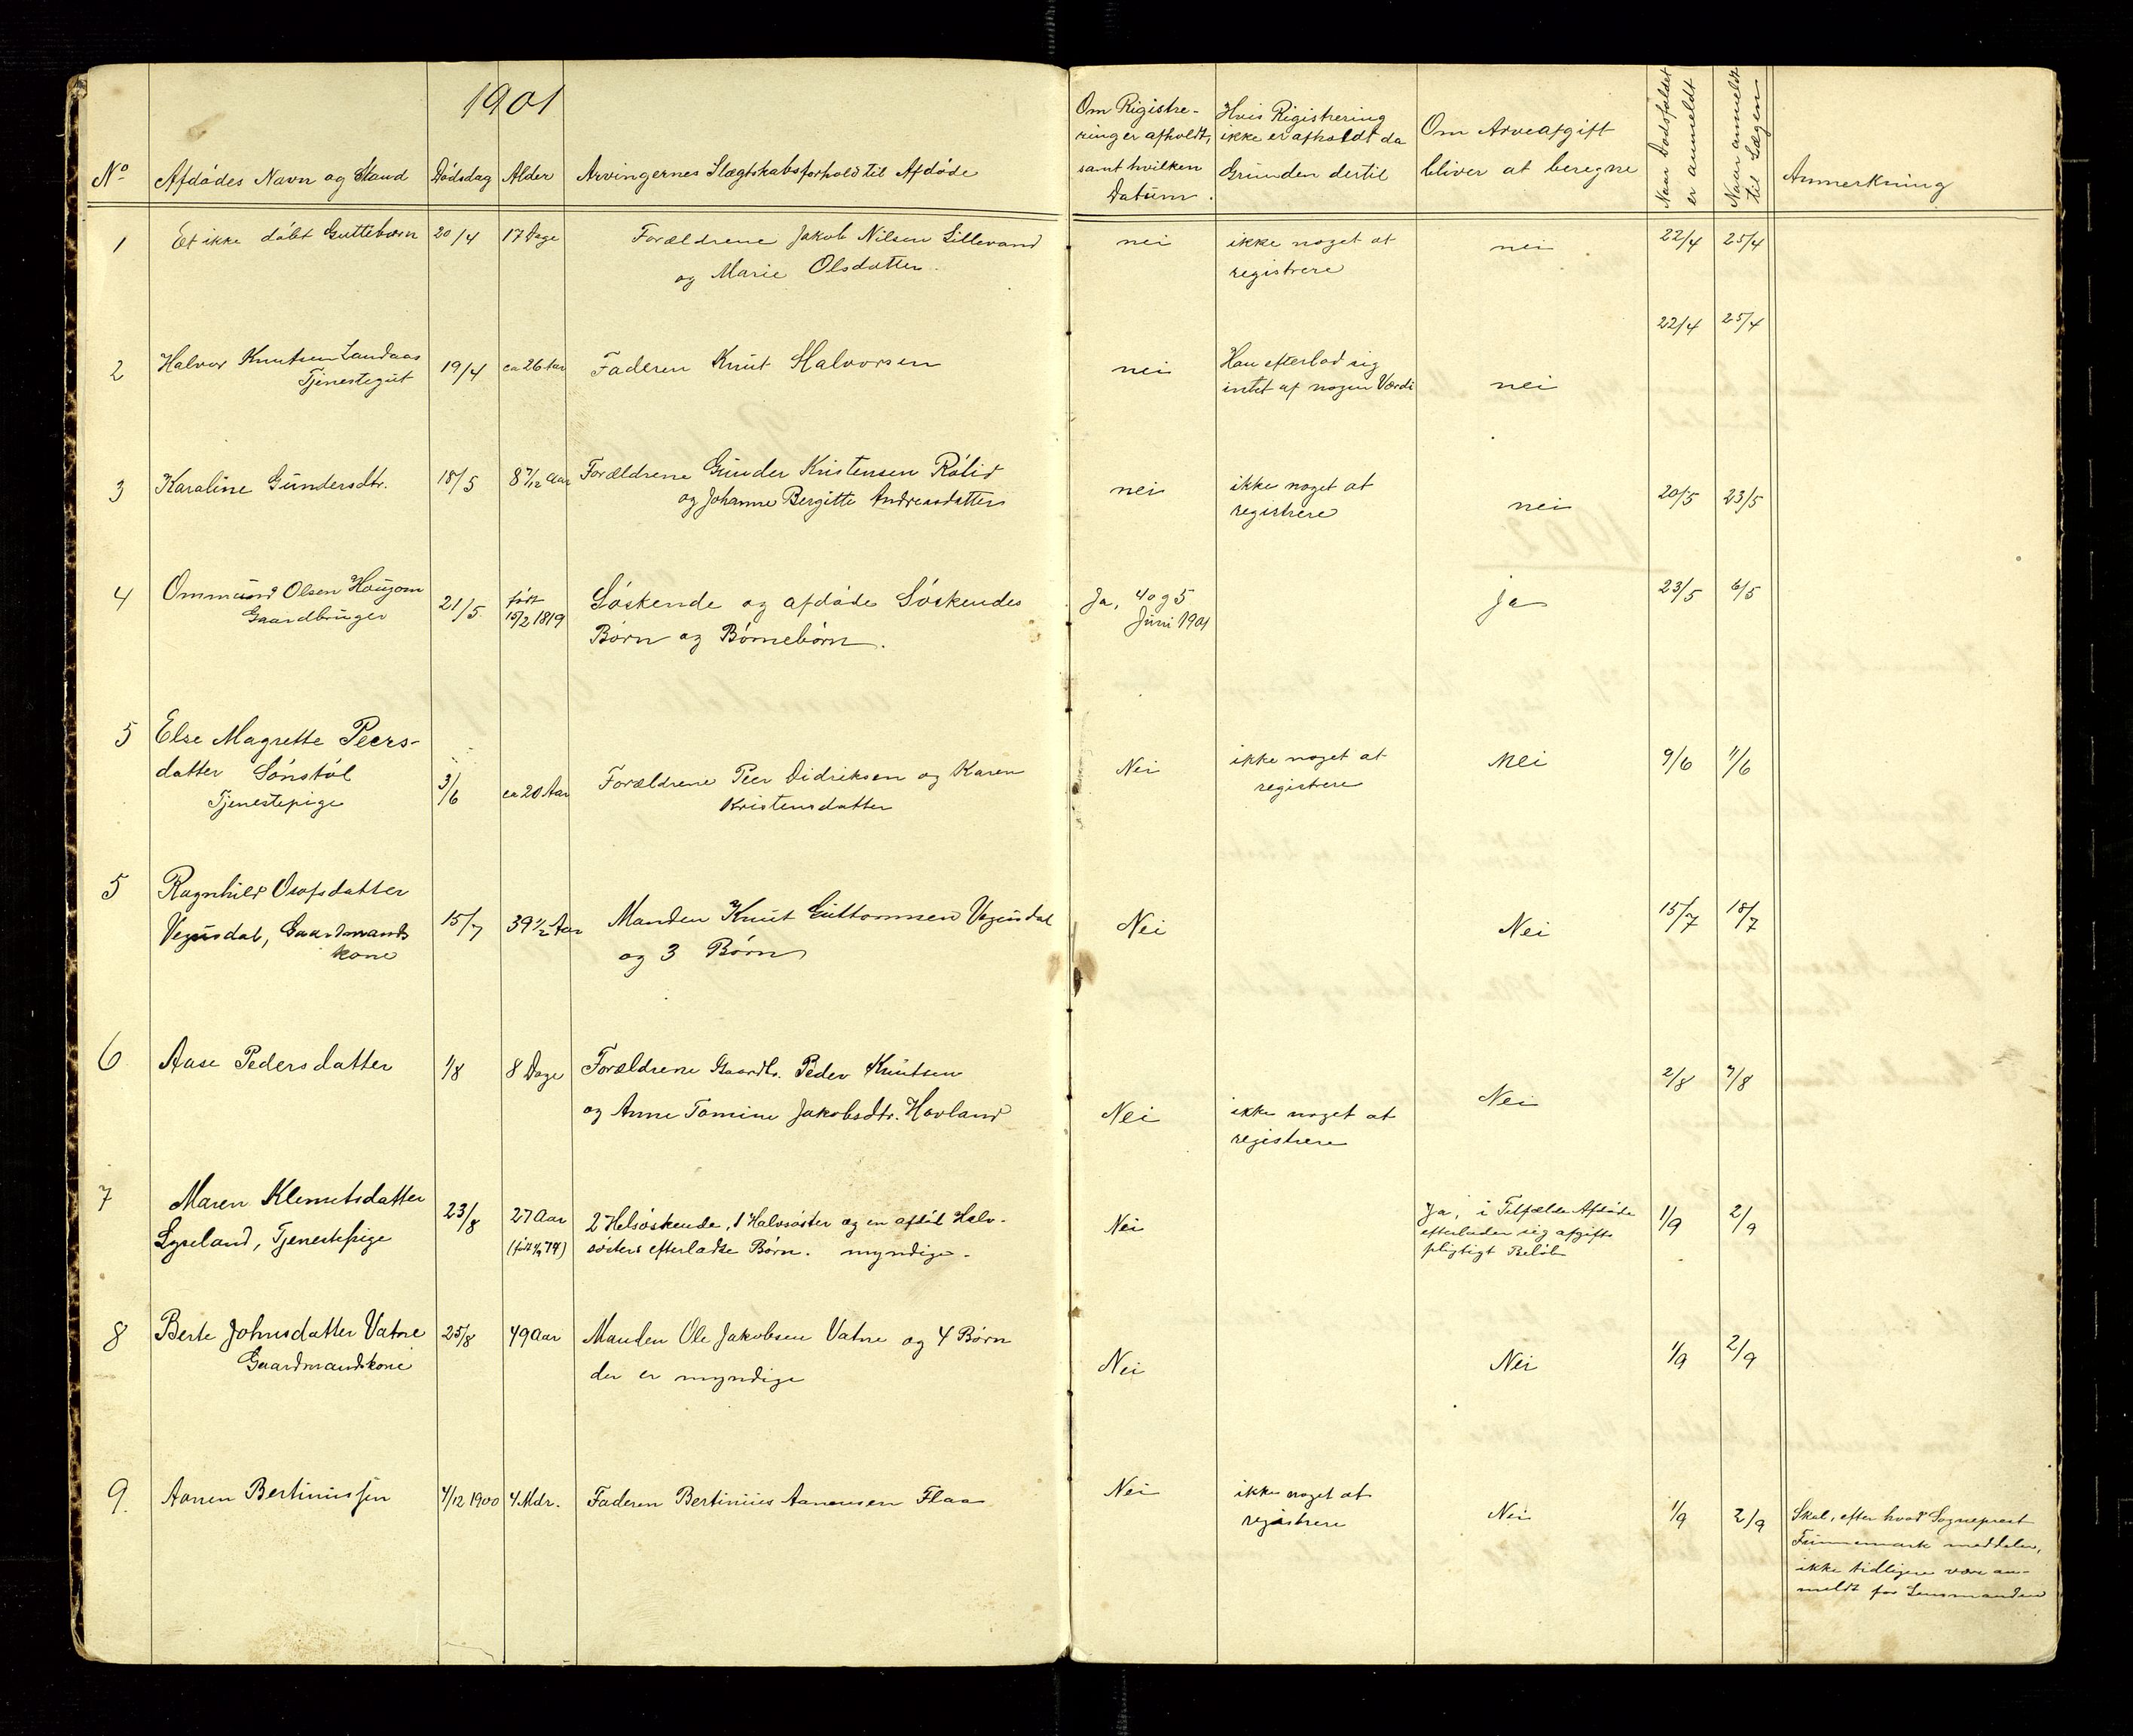 1901
No
Afdødes Navn og Stand
Dødsdag
Alder
Arvingernes Slægtskabsforhold til Afdøde
Om Rigistre-
ring er afholdt,
samt hvilken
Datum.
Hvis Rigistrering
ikke er afholdt da
Grunden dertil
Om Arveafgift
bliver at beregne
Naar Dødsfaldet
er anmeldt
Naar anmeldt
til Lægen
Anmerkning
1
Et ikke døbt Guttebarn
20/4
17 Dage
Forældrene Jakob Nilsen Lillevand
og Marie Olsdatter.
nei
ikke noget at
registrere
nei
22/4
25/4
2
Halvor Knutsen Landaas
Tjenestegut
19/4
ca 26 Aar
Faderen Knut Halvorsen
nei
Han efterlod sig
intet af nogen Værdi
nei
22/4
25/4
3
Karaline Gundersdtr.
18/5
8 7/12 Aar
Forældrene Gunder Kristensen Rølid
og Johanne Bergitte Andreasdatter
nei
ikke noget at
registrere
nei
20/5
23/5
4
Ommund Olsen Hougom
Gaardbruger
21/5.
født
15/2 1819
Søskende og afdøde Søskendes
Børn og Børnebørn.
Ja, 4 og 5
Juni 1901
ja
23/5
6/5
5
Else Magrette Peers-
datter Sønstøl
Tjenestepige
3/6
ca 20 Aar
Forældrene Peer Didriksen og Karen
Kristensdatter
Nei
ikke noget at
registrere
Nei
9/6
11/6
5
Ragnhild Osofsdatter
Vegusdal, Gaardmands
kone
15/7
39 1/2 Aar
Manden Knut Guttormsen Vegusdal
og 3 Børn
Nei
Nei
15/7
18/7
6
Aase Pedersdatter
1/8
8 Dage
Forældrene Gaardbr. Peder Knutsen
og Anne Tomine Jakobsdtr. Hovland
Nei
ikke noget at
registrere
Nei
2/8
7/8
7
Maren Klemetsdatter
Lyseland, Tjenestepige
23/8
27 Aar
(født 74)
2 Helsøskende, 1 Halvsøster og en afdød Halv-
søsters efterladte Børn. myndige.
Nei
Ja, i Tilfælde Afdøde
efterlader sig afgifts
pligtigt Beløb
1/9
2/9
8
Berte Johnsdatter Vatne
Gaardmandskone
25/8
49 Aar
Manden Ole Jakobsen Vatne og 4 Børn
der er myndige
Nei
Nei
1/9
2/9
9.
Aanen Bertinussen
4/12 1900
4 Mdr.
Faderen Bertinius Aanensen Flaa
Nei
ikke noget at
registrere
Nei
1/9
2/9
Skal, efter hvad Sogneprest
Finnemark meddeler,
ikke tidligere være an-
meldt for Lensmanden